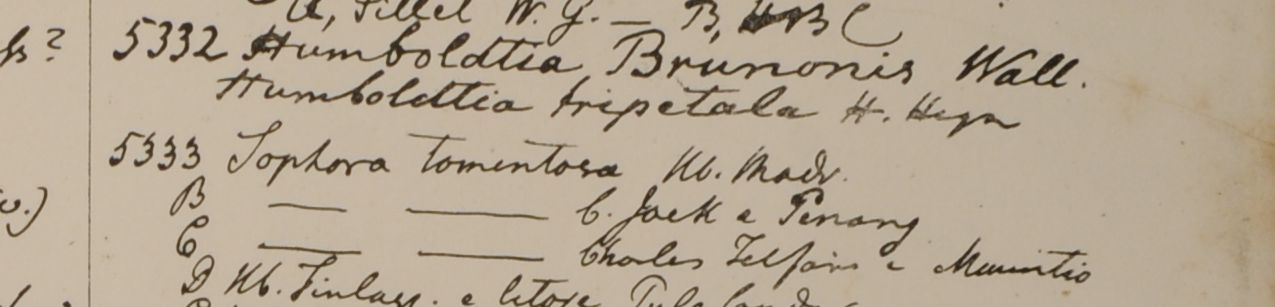 W. G. — B,
5332 Humboldtia Brunonis Wall.
Humboldttia tripetala H. Heyn
5333 Sophora tomentosa Hb. Madr.
B — — C. Jack e Penang
C — — Charles Telfair e Mauritio
D Hb. Finlays. e litore